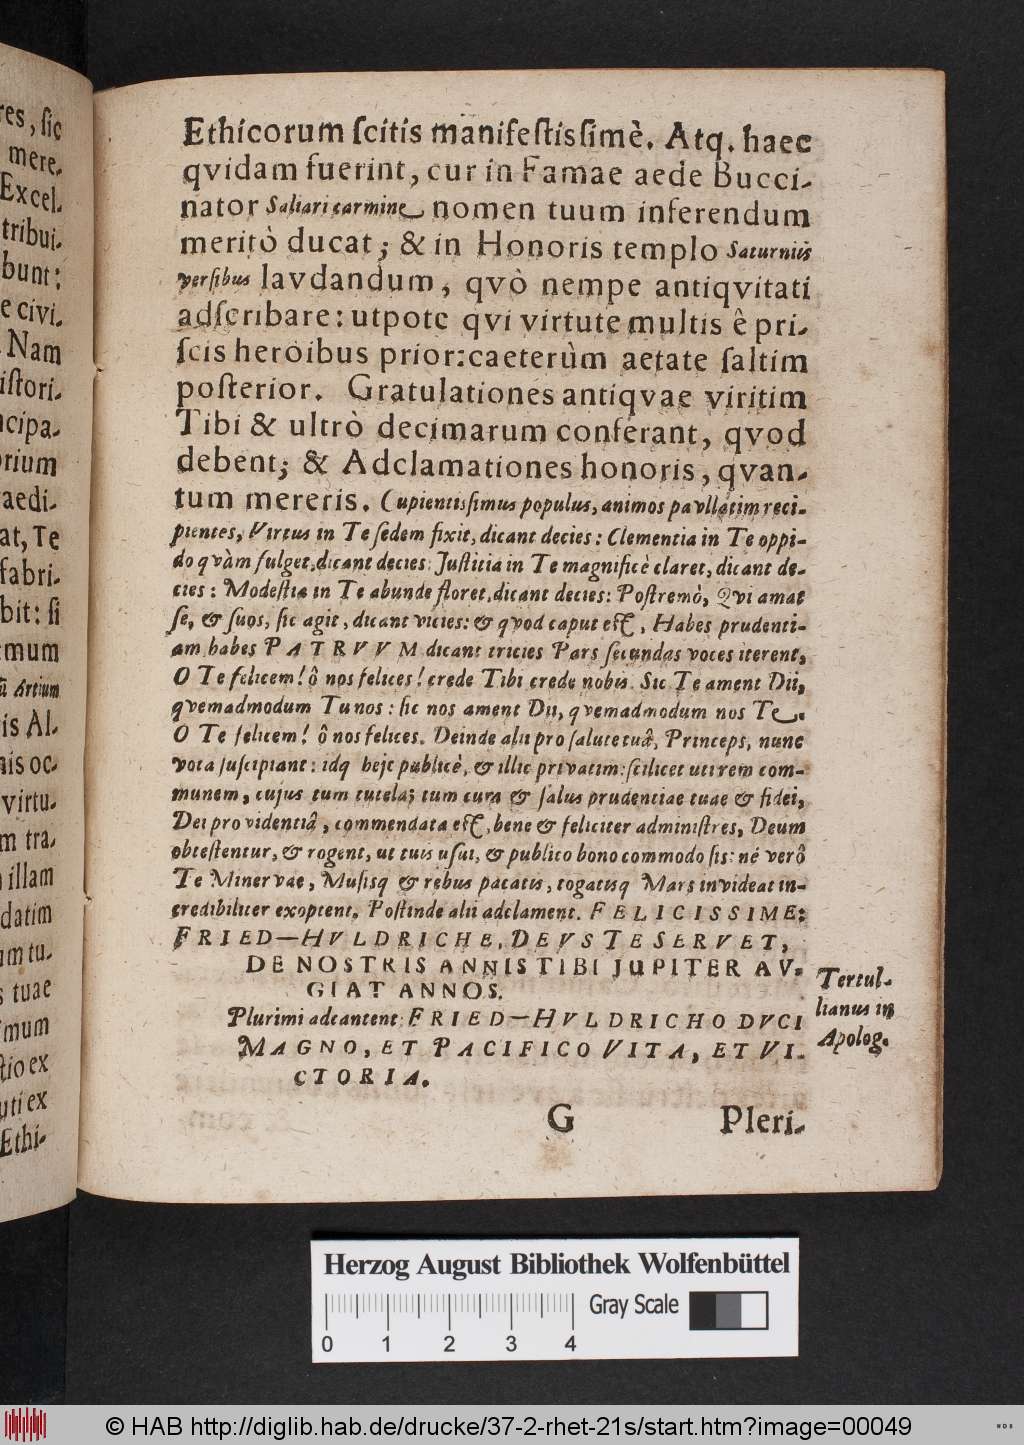 res, ſic
mere-
Excel-
tribui-
bunt:
e civi-
Nam
iſtori-
ncipa-
orium
aedi-
at, Te
fabri-
bit: ſi
emum
Artium
is Al-
nis oc-
virtu-
m tra-
illam
datim
um tu-
s tuae
imum
tio ex
uti ex
Ethi-
Ethicorum ſcitis manifeſtisſimè. Atq. haec
qvidam fuerint, cur in Famae aede Bucci-
nator Saliari carmine nomen tuum inferendum
meritò ducat; & in Honoris templo Saturniis
verſibus lavdandum, qvò nempe antiqvitati
adſcribare: utpote qvi virtute multis ê pri-
ſcis heroibus prior: caeterùm aetate ſaltim
poſterior. Gratulationes antiqvae viritim
Tibi & ultrò decimarum conferant, qvod
debent; & Adclamationes honoris, qvan-
tum mereris. Cupientisſimus populus, animos pavllatim reci-
pientes, Virtus in Te ſedem fixit, dicant decies: Clementia in Te oppi-
do qvàm fulget, dicant decies: Juſtitia in Te magnificè claret, dicant de-
cies: Modeſtia in Te abunde floret, dicant decies: Poſtremò, Qvi amat
ſe, & ſuos, ſic agit, dicant vicies: & qvod caput eſt, Habes prudenti-
am habes PATRVVM dicant tricies Pars ſecundas voces iterent,
O Te felicem! ô nos felices! crede Tibi crede nobis. Sic Te ament Dii,
qvemadmodum Tu nos: ſic nos ament Dii, qvemadmodum nos Te.
O Te felicem! ô nos felices. Deinde alii pro ſalute tuâ, Princeps, nunc
vota ſuſcipiant: idq heic publicè, & illic privatim: ſcilicet uti rem com-
munem, cujus tum tutela; tum cura & ſalus prudentiae tuae & fidei,
Dei providentiâ, commendata eſt, bene & feliciter adminiſtres, Deum
obteſtentur, & rogent, ut tuis uſui, & publico bono commodo ſis: né verô
Te Minervae, Muſisq & rebus pacatis, togatisq Mars invideat in-
credibiliter exoptent. Poſtinde alii adclament. FELICISSIME:
FRIED—HVLDRICHE, DEVS TE SERVET,
DE NOSTRIS ANNIS TIBI JUPITER AV-
GIAT ANNOS.
Plurimi adcantent: FRIED—HVLDRICHO DVCI
MAGNO, ET PACIFICO VITA, ET VI-
CTORIA.
Tertul-
lianus in
Apolog.
G Pleri-
Herzog August Bibliothek Wolfenbüttel
Gray Scale
0 1 2 3 4
© HAB http://diglib.hab.de/drucke/37-2-rhet-21s/start.htm?image=00049